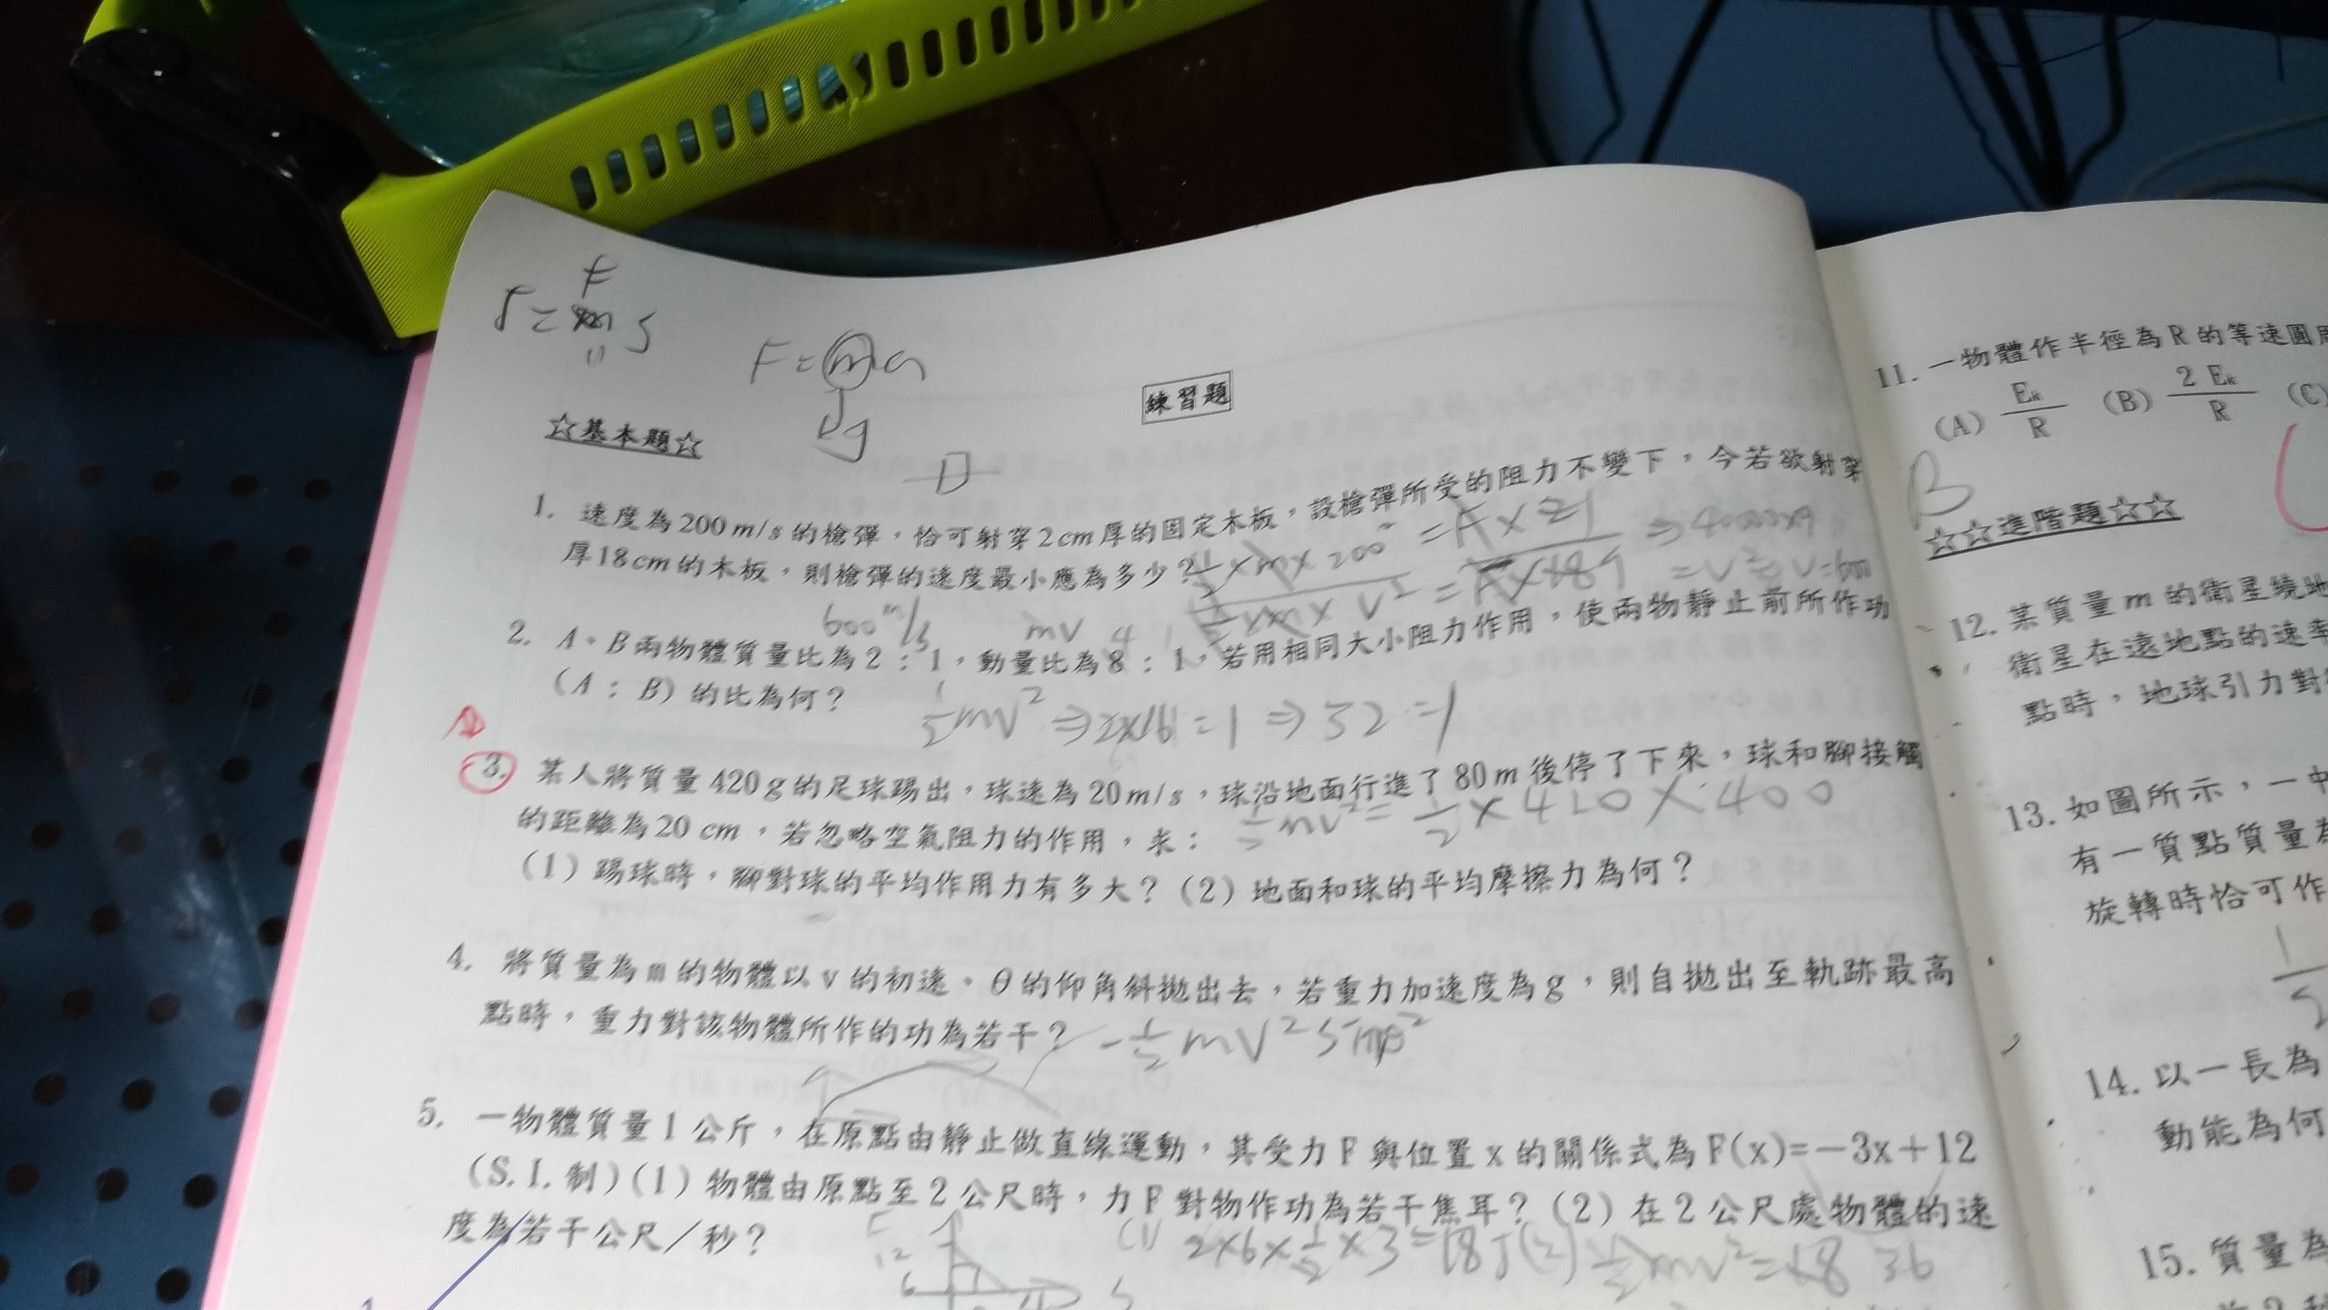 F
F=ma
練習題
☆基本題☆
1. 速度為200m/s的槍彈，恰可射穿2cm厚的固定木板，設槍彈所受的阻力不變下，今若欲射穿
厚18cm的木板，則槍彈的速度最小應為多少？
600 m/s
mv 4 1
2. A、B兩物體質量比為2：1，動量比為8：1，若用相同大小阻力作用，使兩物靜止前所作功
(A：B)的比為何？
½mv² ⇒ 2×16=1 ⇒ 32=1
3. 某人將質量420g的足球踢出，球速為20m/s，球沿地面行進了80m後停了下來，球和腳接觸
的距離為20cm，若忽略空氣阻力的作用，求：
½mv²=½×420×400
(1)踢球時，腳對球的平均作用力有多大？(2)地面和球的平均摩擦力為何？
4. 將質量為m的物體以v的初速、θ的仰角斜拋出去，若重力加速度為g，則自拋出至軌跡最高
點時，重力對該物體所作的功為若干？
5. 一物體質量1公斤，在原點由靜止做直線運動，其受力F與位置x的關係式為F(x)=－3x＋12
(S.I.制)(1)物體由原點至2公尺時，力F對物作功為若干焦耳？(2)在2公尺處物體的速
度為若干公尺／秒？
12
6
(1) 2×6×½×3=18J (2) ½×mv²=18 36
11. 一物體作半徑為R的等速圓
(A) Eₖ/R (B) 2Eₖ/R (C)
B
☆☆進階題☆☆
12. 某質量m的衛星繞地
衛星在遠地點的速率
點時，地球引力對
13. 如圖所示，一中
有一質點質量為
旋轉時恰可作
14. 以一長為
動能為何
15. 質量為